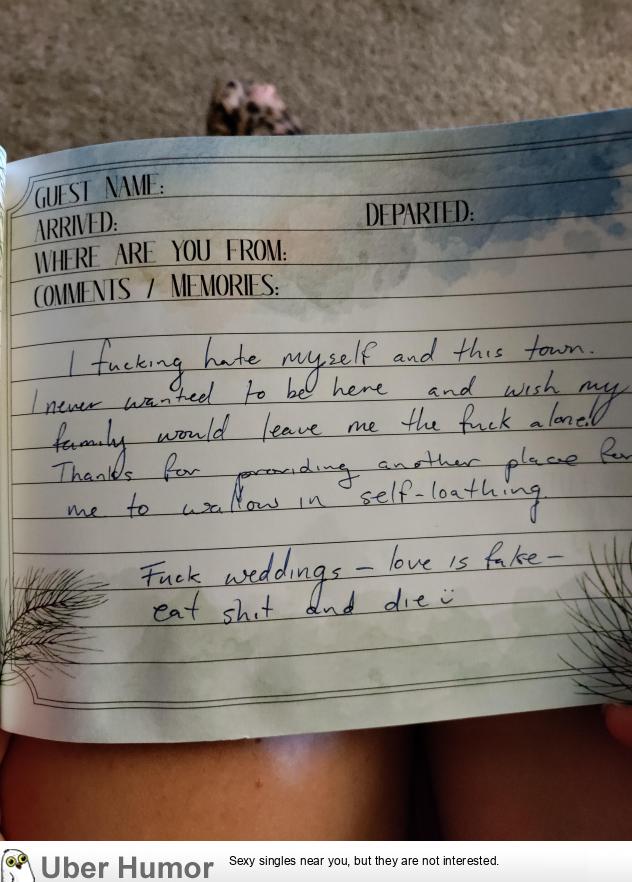 GUEST NAME:
ARRIVED: DEPARTED:
WHERE ARE YOU FROM:
COMMENTS / MEMORIES:
I fucking hate myself and this town.
I never wanted to be here and wish my
family would leave me the fuck alone!
Thanks for providing another place for
me to wallow in self-loathing.
Fuck weddings – love is fake –
eat shit and die ü
Uber Humor
Sexy singles near you, but they are not interested.